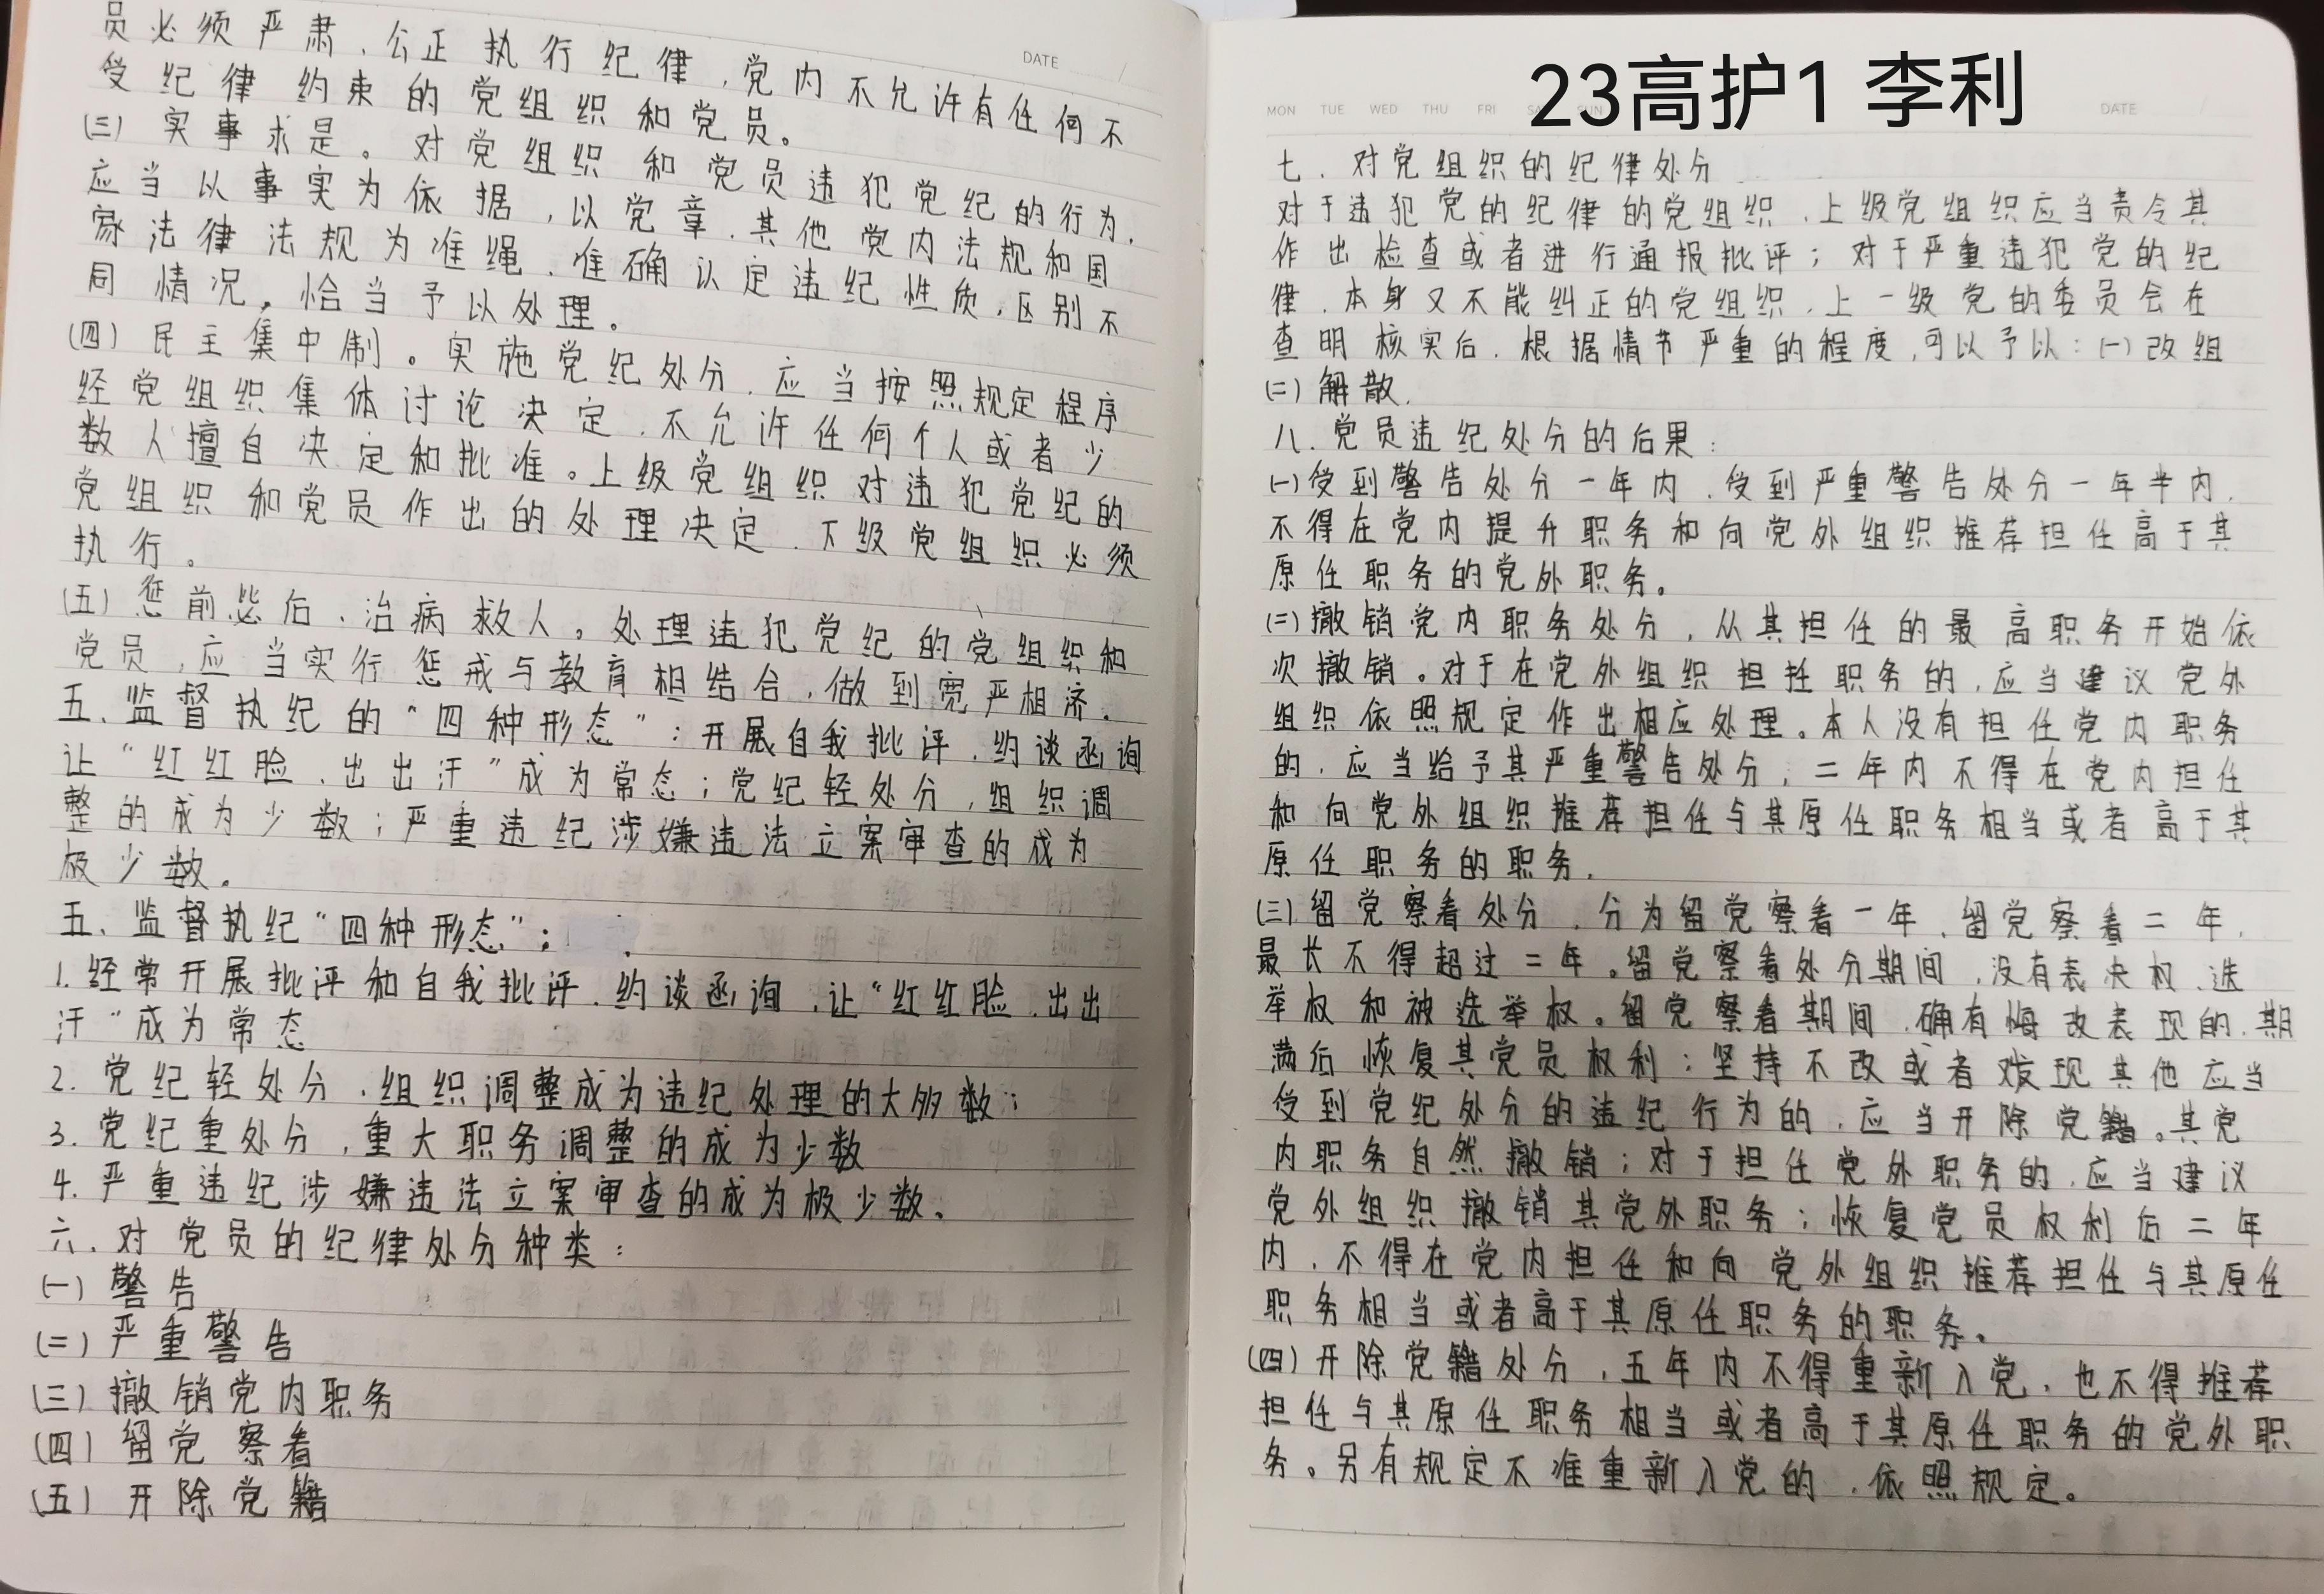 DATE
员必须严肃、公正执行纪律,党内不允许有任何不
受纪律约束的党组织和党员。
(三)实事求是。对党组织和党员违犯党纪的行为,
应当以事实为依据,以党章、其他党内法规和国
家法律法规为准绳,准确认定违纪性质,区别不
同情况,恰当予以处理。
(四)民主集中制。实施党纪处分,应当按照规定程序
经党组织集体讨论决定,不允许任何个人或者少
数人擅自决定和批准。上级党组织对违犯党纪的
党组织和党员作出的处理决定,下级党组织必须
执行。
(五)惩前毖后、治病救人。处理违犯党纪的党组织和
党员,应当实行惩戒与教育相结合,做到宽严相济。
五、监督执纪的“四种形态”:开展自我批评、约谈函询
让“红红脸、出出汗”成为常态;党纪轻处分,组织调
整的成为少数;严重违纪涉嫌违法立案审查的成为
极少数。
五、监督执纪“四种形态”;
1.经常开展批评和自我批评、约谈函询,让“红红脸、出出
汗”成为常态
2.党纪轻处分、组织调整成为违纪处理的大多数;
3.党纪重处分,重大职务调整的成为少数
4.严重违纪涉嫌违法立案审查的成为极少数、
六、对党员的纪律处分种类:
(一)警告
(二)严重警告
(三)撤销党内职务
(四)留党察看
(五)开除党籍
23高护1 李利
MON TUE WED THU FRI SAT SUN DATE
七、对党组织的纪律处分
对于违犯党的纪律的党组织,上级党组织应当责令其
作出检查或者进行通报批评;对于严重违犯党的纪
律、本身又不能纠正的党组织,上一级党的委员会在
查明核实后,根据情节严重的程度,可以予以:(一)改组
(二)解散.
八、党员违纪处分的后果:
(一)受到警告处分一年内、受到严重警告处分一年半内,
不得在党内提升职务和向党外组织推荐担任高于其
原任职务的党外职务。
(二)撤销党内职务处分,从其担任的最高职务开始依
次撤销。对于在党外组织担任职务的,应当建议党外
组织依照规定作出相应处理。本人没有担任党内职务
的,应当给予其严重警告处分,二年内不得在党内担任
和向党外组织推荐担任与其原任职务相当或者高于其
原任职务的职务.
(三)留党察看处分,分为留党察看一年、留党察看二年,
最长不得超过二年。留党察看处分期间,没有表决权、选
举权和被选举权。留党察看期间,确有悔改表现的,期
满后恢复其党员权利;坚持不改或者发现其他应当
受到党纪处分的违纪行为的,应当开除党籍。其党
内职务自然撤销;对于担任党外职务的,应当建议
党外组织撤销其党外职务;恢复党员权利后二年
内,不得在党内担任和向党外组织推荐担任与其原任
职务相当或者高于其原任职务的职务。
(四)开除党籍处分,五年内不得重新入党,也不得推荐
担任与其原任职务相当或者高于其原任职务的党外职
务。另有规定不准重新入党的,依照规定。